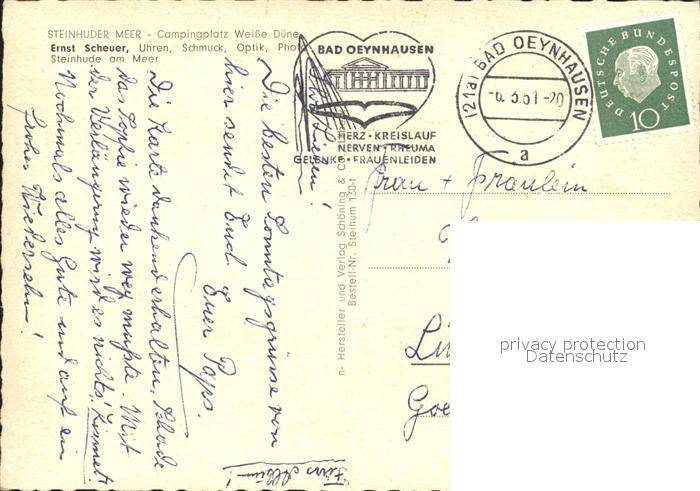 STEINHUDER MEER - Campingplatz Weiße Düne
Ernst Scheuer, Uhren, Schmuck, Optik, Phot
Steinhude am Meer
BAD OEYNHAUSEN
HERZ · KREISLAUF
NERVEN · RHEUMA
GELENKE · FRAUENLEIDEN
(21a) BAD OEYNHAUSEN
-6.3.61-20
a
DEUTSCHE BUNDESPOST
10
Ihr Lieben!
Die besten Sonntagsgrüsse von
hier sendet Euch Euer Paps.
Die Karte dankend erhalten, Schade
das Sophie wieder weg mußte. Mit
der Verlängerung wird es nichts!
Nochmals alles Gute und auf ein
frohes Wiedersehn!
Fürs Album!
n- Hersteller und Verlag Schöning & Co
Bestell-Nr. Steinhum 120-1
Frau + Fräulein
privacy protection
Datenschutz